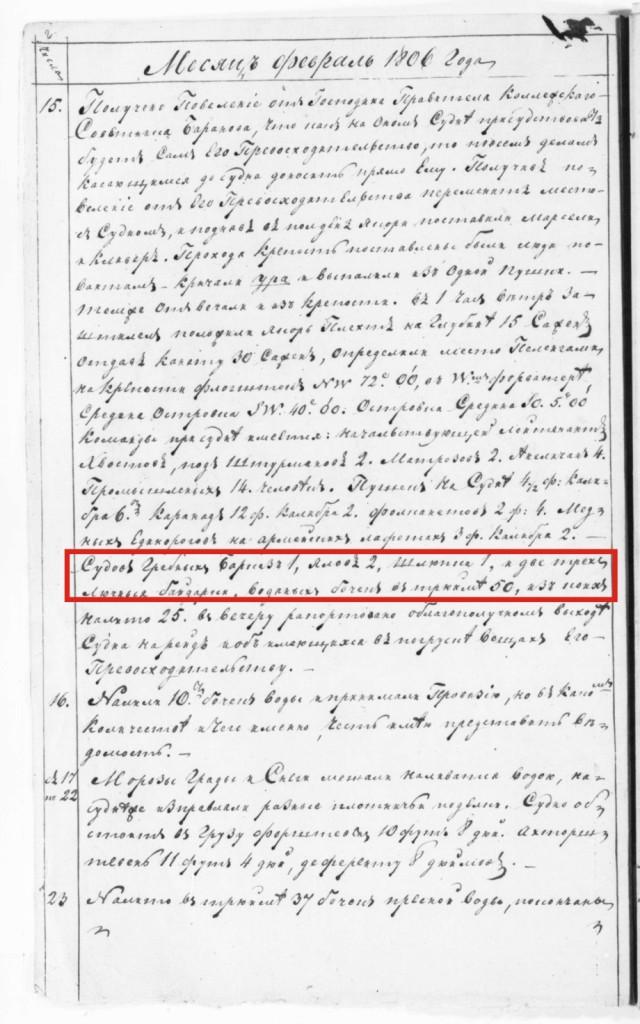 Числа
Месяцъ Февраль 1806 Года
15. Получено Повеление отъ Господина Правителя Коллежскаго
Советника Баранова, что какъ на ономъ Суднѣ присудствовать
будетъ Самъ Его Превосходительство, то повсемъ деламъ
касающимся до судна доносить прямо Ему. Получивъ по-
веление отъ Его Превосходительства переменить место-
съ Судномъ, и поднявъ въ полдень Якорь поставили Марсели
и Кливеръ. Проходя крепость поставлены были люди по
вантамъ - кричали ура и выпалили изъ одной Пушки. —
Темже отвечали и изъ крепости. въ 1 часъ ветръ За-
штилелъ положили Якорь Плехтъ на Глубинѣ 15 Саженъ
отдавъ Канату 30 Саженъ, определили место Пеленгами
на крепости флагштокъ NW 72° 00,
Средина Островка SW. 40° 00. Островка Средина Ю. 5° 00
Команды при суднѣ имеется: начальствующей Лейтенантъ
Хвостовъ, подъ Штурмановъ 2. Матрозовъ 2. Алеутъ 4.
Промышленыхъ 14. человекъ. Пушекъ на Суднѣ 4 ф: Кали-
бра 6. Каранадъ 12 ф. Калибра 2. фолканетовъ 2 ф: 4. Мед-
ныхъ Единороговъ на армейскихъ лафетахъ 3 ф. Калибра 2. —
Судовъ Гребныхъ Баркасъ 1, Яловъ 2, Шлюпка 1, и две трехъ
лючныя байдарки. Водяныхъ бочекъ въ трюмѣ 50, изъ коихъ
налито 25. въ вечеру рапортовано облагополучномъ выходѣ
Судна на рейдъ и объ имеющихся въ погрузкѣ вещахъ Его
Превосходительству. —
16. Налили 10. бочекъ воды и принимали Провизию, но въ какомъ
Количествѣ и чего именно, честь имею представить Ве-
домость. —
съ 17
по 22 Морозы Грады и Снеги мешали наливатся водою, на-
суднѣже изправляли разныя плотничьи поделки. Судно об-
стоитъ въ Грузу форштевень 10 футъ 8 дюй. Ахтерш-
тевень 11 футъ 4 дюй, деферентъ 8 дюймовъ. —
23 Налито въ трюмѣ 37 бочекъ пресной воды, покончаны